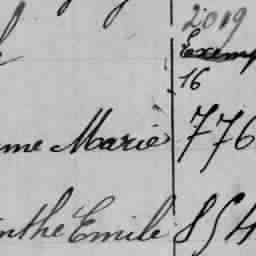 2019
Exemp
16
me Marie 776
nthe Emile 854